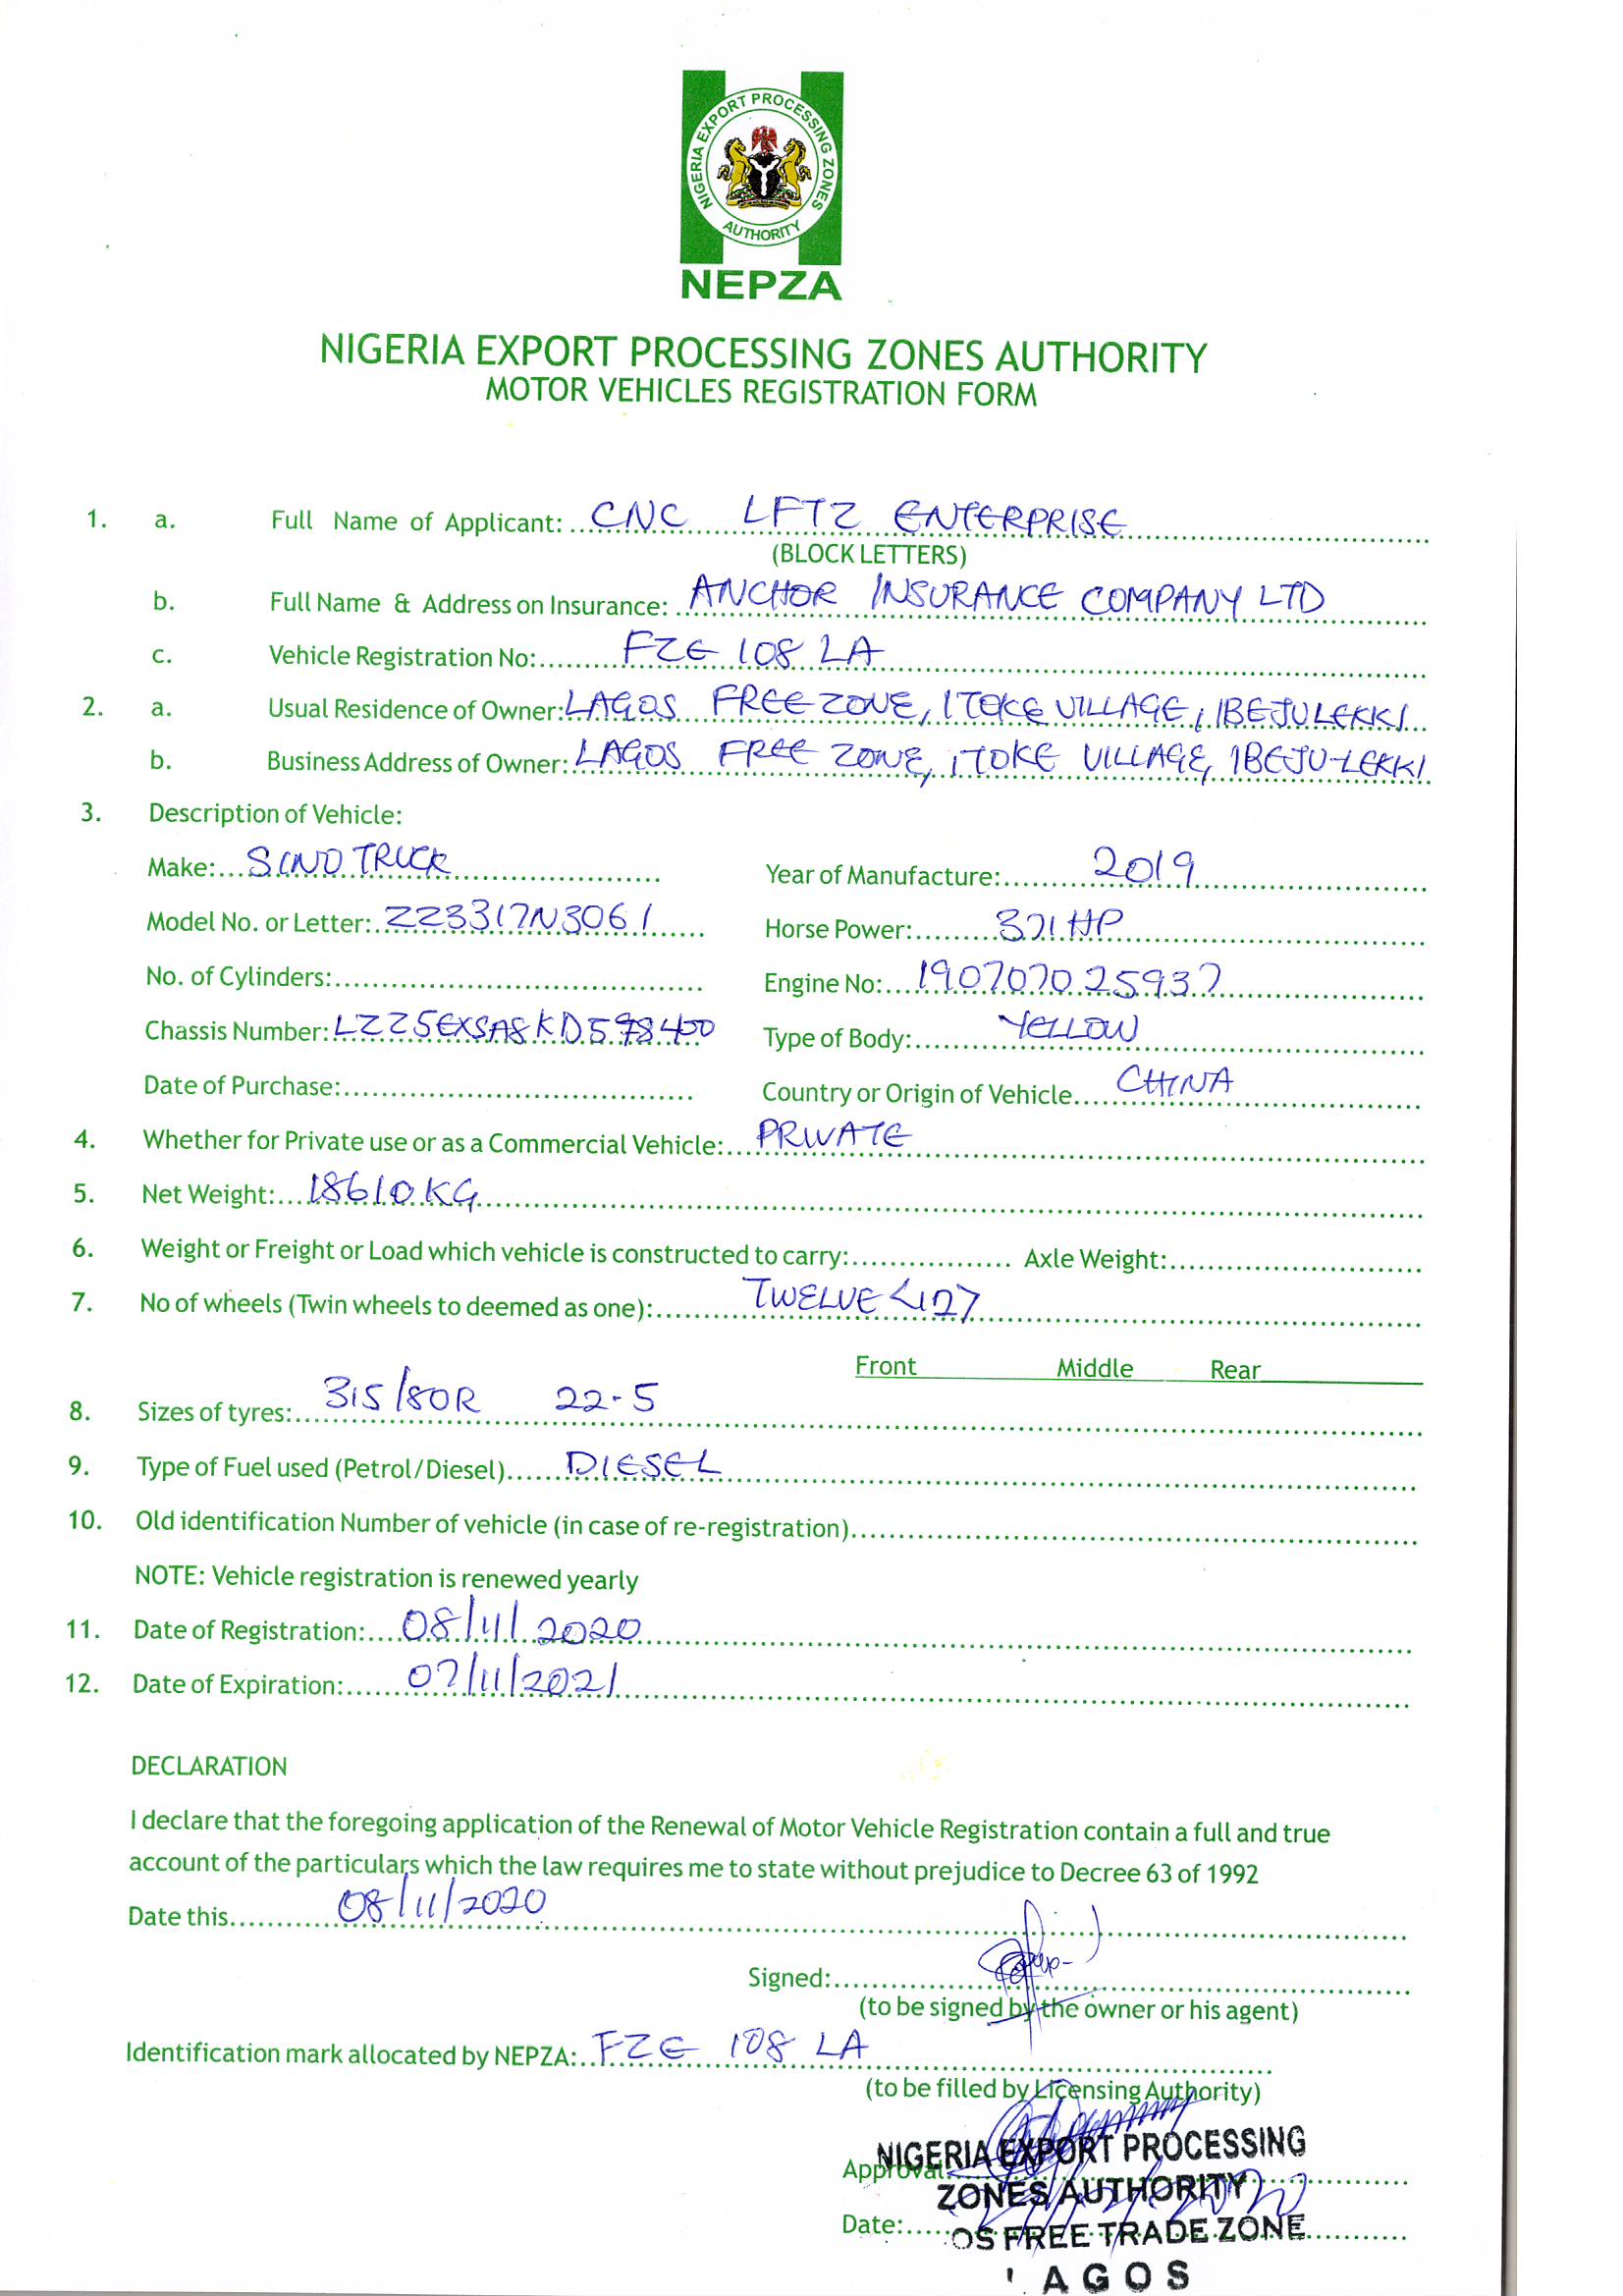 NIGERIA EXPORT PROCESSING ZONES
AUTHORITY
NEPZA
NIGERIA EXPORT PROCESSING ZONES AUTHORITY
MOTOR VEHICLES REGISTRATION FORM
1. a. Full Name of Applicant: CNC LFTZ ENTERPRISE
(BLOCK LETTERS)
b. Full Name & Address on Insurance: ANCHOR INSURANCE COMPANY LTD
c. Vehicle Registration No: FZE 108 LA
2. a. Usual Residence of Owner: LAGOS FREE ZONE, ITOKE VILLAGE, IBEJU LEKKI
b. Business Address of Owner: LAGOS FREE ZONE, ITOKE VILLAGE, IBEJU-LEKKI
3. Description of Vehicle:
Make: SINO TRUCK Year of Manufacture: 2019
Model No. or Letter: ZZ3317N3061 Horse Power: 371HP
No. of Cylinders: Engine No: 190707025937
Chassis Number: LZZ5EXSA8KD598400 Type of Body: YELLOW
Date of Purchase: Country or Origin of Vehicle CHINA
4. Whether for Private use or as a Commercial Vehicle: PRIVATE
5. Net Weight: 18610KG
6. Weight or Freight or Load which vehicle is constructed to carry: Axle Weight:
7. No of wheels (Twin wheels to deemed as one): TWELVE <12>
Front Middle Rear
8. Sizes of tyres: 315/80R 22-5
9. Type of Fuel used (Petrol/Diesel) DIESEL
10. Old identification Number of vehicle (in case of re-registration)
NOTE: Vehicle registration is renewed yearly
11. Date of Registration: 08/11/2020
12. Date of Expiration: 07/11/2021
DECLARATION
I declare that the foregoing application of the Renewal of Motor Vehicle Registration contain a full and true
account of the particulars which the law requires me to state without prejudice to Decree 63 of 1992
Date this 08/11/2020
Signed:
(to be signed by the owner or his agent)
Identification mark allocated by NEPZA: FZE 108 LA
(to be filled by Licensing Authority)
NIGERIA EXPORT PROCESSING
Approval
ZONES AUTHORITY
Date:
OS FREE TRADE ZONE
AGOS